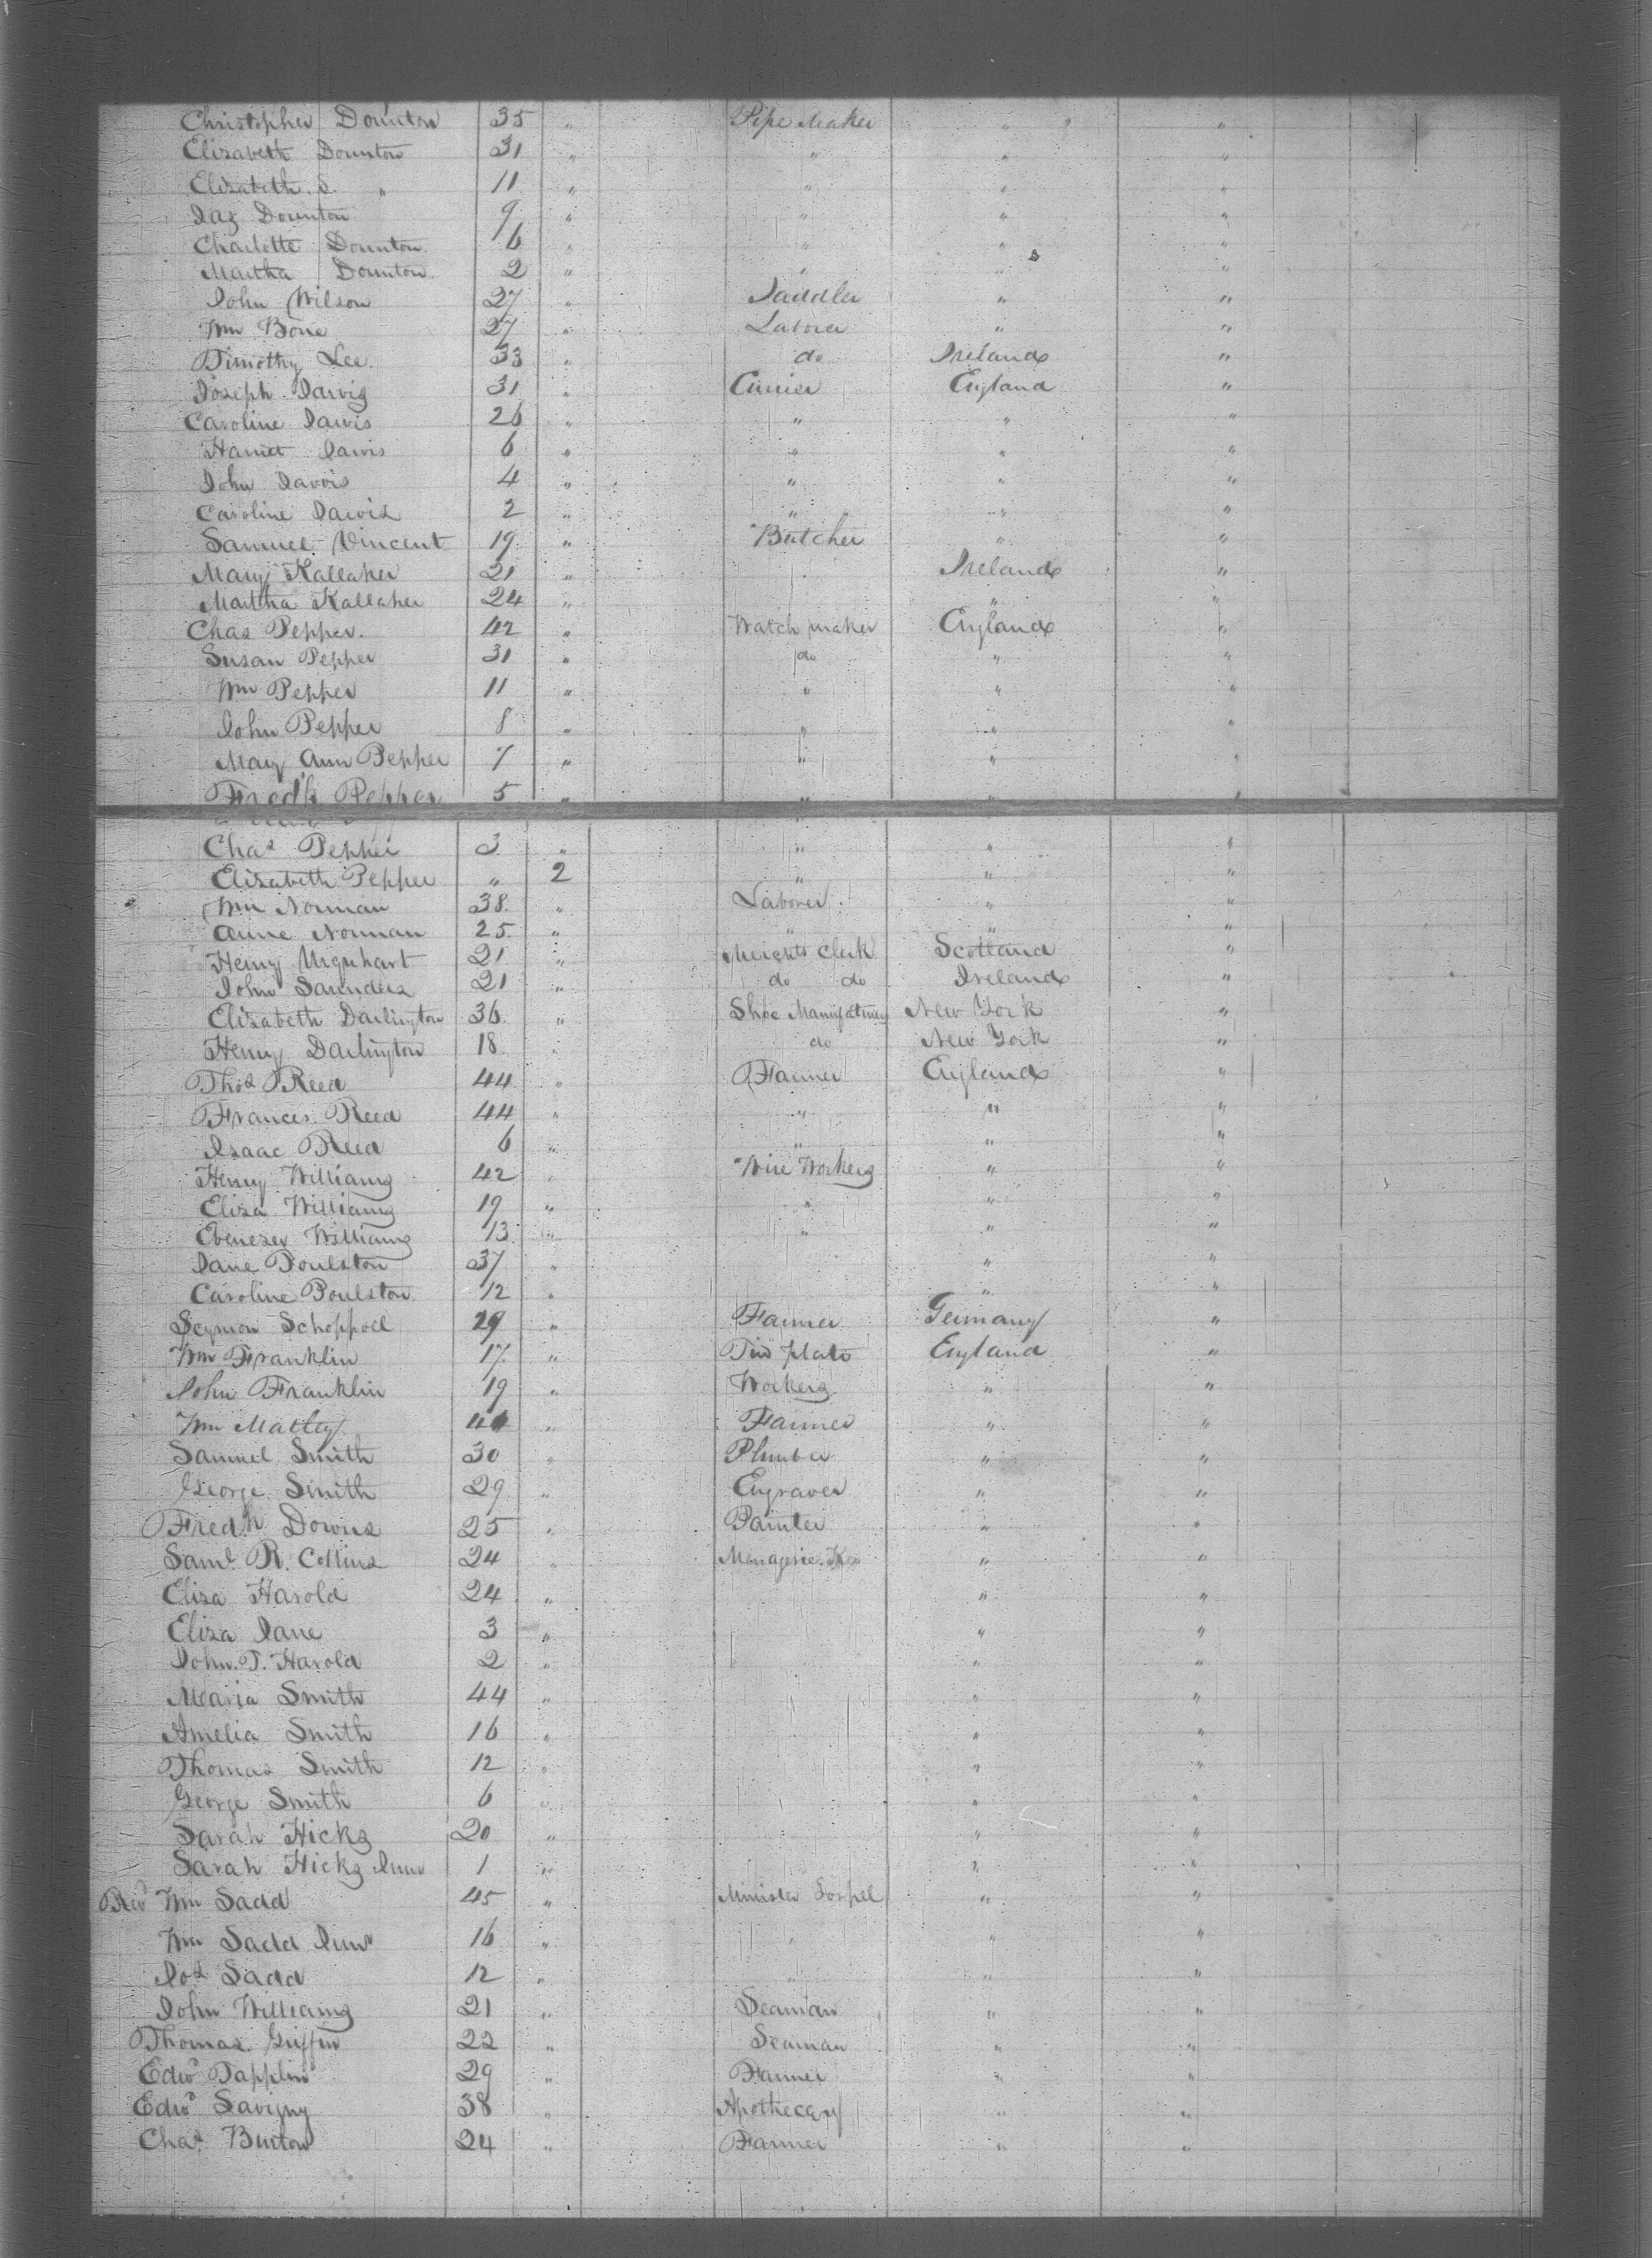 Christopher Dounton 35 " Pipe Maker " "
Elizabeth Dounton 31 " " " "
Elizabeth S. " 11 " " " "
Jas Dounton 9 " " " "
Charlotte Dounton 6 " " " "
Martha Dounton 2 " " " "
John Wilson 27 " Saddler " "
Wm Bone 27 " Laborer " "
Timothy Lee 33 " do Ireland "
Joseph Jarvis 31 " Currier England "
Caroline Jarvis 26 " " " "
Harriet Jarvis 6 " " " "
John Jarvis 4 " " " "
Caroline Jarvis 2 " " " "
Samuel Vincent 19 " Butcher " "
Mary Kallaher 21 " Ireland "
Martha Kallaher 24 " " "
Chas Pepper 42 " Watch maker England "
Susan Pepper 31 " do " "
Wm Pepper 11 " " " "
John Pepper 8 " " " "
Mary Ann Pepper 7 " " " "
Fredk Pepper 5 " " " "
Chas Pepper 3 " " " "
Elizabeth Pepper " 2 " " "
Wm Norman 38 " Laborer " "
Anne Norman 25 " " " "
Henry Urquhart 21 " Merchts Clerk Scotland "
John Saunders 21 " do do Ireland "
Elizabeth Darlington 36 " Shoe New York "
Henry Darlington 18 " do New York "
Thos Reed 44 " Farmer England "
Frances Reed 44 " " " "
Isaac Reed 6 " " " "
Henry Williams 42 " Wire Workers " "
Eliza Williams 19 " " " "
Ebenezer Williams 13 " " " "
Jane Poulston 37 " " "
Caroline Poulston 12 " " "
Seymon Schoppoll 29 " Farmer Germany "
Wm Franklin 17 " Tin plate England "
John Franklin 19 " Workers " "
Wm Matley " Farmer " "
Samuel Smith 30 " Plumber " "
George Smith 29 " Engraver " "
Fredk Downs 25 " Painter " "
Saml R. Collins 24 " Menagerie " "
Eliza Harold 24 " " "
Eliza Jane 3 " " "
John T. Harold 2 " " "
Maria Smith 44 " " "
Amelia Smith 16 " " "
Thomas Smith 12 " " "
George Smith 6 " " "
Sarah Hicks 20 " " "
Sarah Hicks Junr 1 " " "
Revd Wm Sadd 45 " Minister Gospel " "
Wm Sadd Junr 16 " " " "
Jos Sadd 12 " " " "
John Williams 21 " Seaman " "
Thomas Griffin 22 " Seaman " "
Edwd Tapplin 29 " Farmer " "
Edwd Savigny 38 " Apothecary " "
Chas Burton 24 " Farmer " "